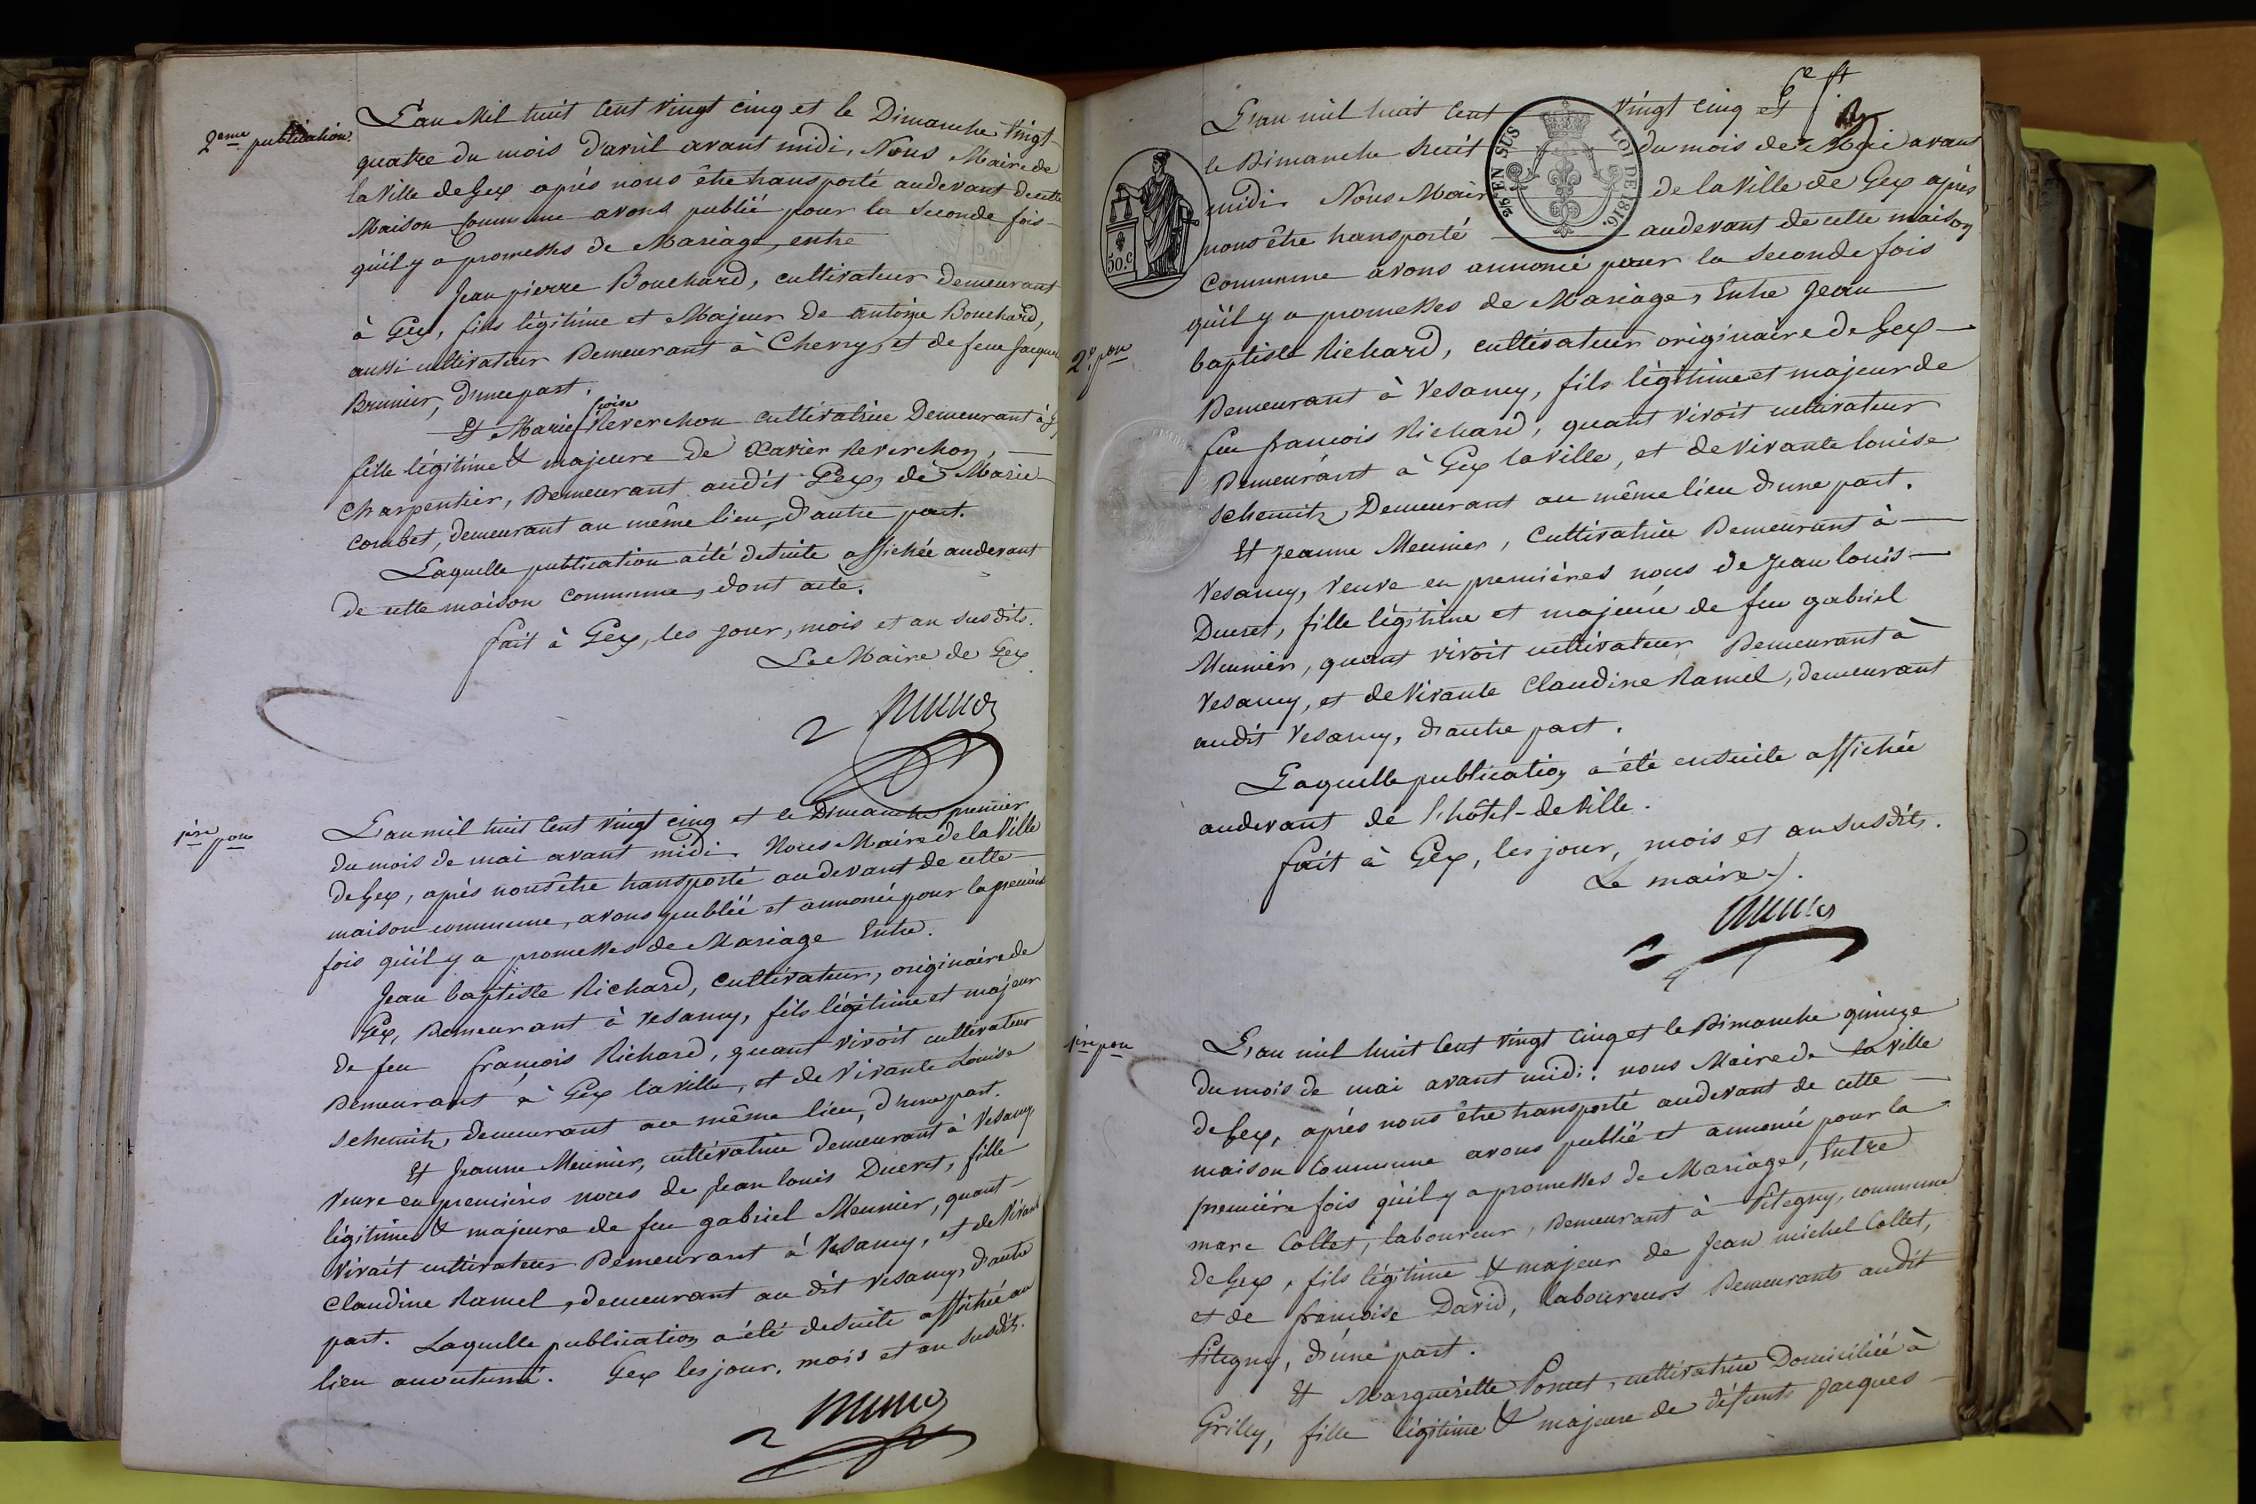 2eme publication.
L'an Mil huit Cent vingt cinq et le Dimanche vingt
quatre du mois d'avril avant midi, Nous Maire de
la Ville de Gex après nous être transporté audevant de cette
Maison Commune avons publié pour la Seconde fois
qu'il y a promesses de Mariage, entre
Jean pierre Bouchard, cultivateur Demeurant
à Gex, fils légitime et Majeur de antoine Bouchard,
aussi cultivateur Demeurant à Chevry, et de feue Jacqueline
Brunier, D'une part.
Et Marie fçoise Reverchon cultivatrice Demeurant à G
fille légitime & majeure de Xavier Reverchon,
Charpentier, Demeurant audit Gex, de Marie
Combet, demeurant au même lieu, d'autre part.
Laquelle publication a été desuite affichée audevant
de cette maison commune, dont acte.
fait à Gex, les jour, mois et an susdits.
Le Maire de Gex
1ère pon
L'an mil huit Cent vingt cinq et le Dimanche premier
du mois de mai avant midi. Nous Maire de la Ville
de Gex, après nous être transporté audevant de cette
maison commune, avons publié et annoncé pour la première
fois qu'il y a promesses de Mariage Entre.
Jean baptiste Richard, Cultivateur, originaire de
Gex, Demeurant à Vesancy, fils légitime et majeur
de feu françois Richard, quant vivoit cultivateur
Demeurant à Gex la ville, et de Vivante Louise
schemitz, demeurant au même lieu, d'une part.
Et Jeanne Meunier, cultivatrice demeurant à Vesancy,
Veuve en premières noces de Jean louis Ducret, fille
légitime & majeure de feu gabriel Meunier, quant
vivait cultivateur Demeurant à Vesancy, et de Vivante
Claudine Ramel, demeurant au dit Vesancy, d'autre
part. Laquelle publication a été desuite affichée au
lieu accoutumé. Gex les jour, mois et an susdits.
6e ft
L'an mil huit Cent vingt cinq et
le Dimanche huit du mois de Mai avant
midi. Nous Maire de la Ville de Gex après
nous être transporté audevant de cette maison
Commune avons annoncé pour la seconde fois
qu'il y a promesses de Mariage, Entre Jean
2e pon
baptiste Richard, cultivateur originaire de Gex
Demeurant à Vesancy, fils légitime et majeur de
feu françois Richard, quant vivoit cultivateur
Demeurant à Gex la ville, et de Vivante louise
schemitz, Demeurant au même lieu d'une part.
Et Jeanne Meunier, Cultivatrice Demeurant à
Vesancy, Veuve en premières noces de Jean louis
Ducret, fille légitime et majeure de feu gabriel
Meunier, quant vivoit cultivateur Demeurant à
Vesancy, et de Vivante Claudine Ramel, demeurant
audit Vesancy, d'autre part.
Laquelle publication a été ensuite affichée
audevant de l'hôtel-de Ville.
fait à Gex, les jour, mois et an susdits.
Le maire.
5/6 EN SUS
LOI DE 1816.
50.c
1ère pon
L'an mil huit Cent vingt Cinq et le Dimanche quinze
du mois de mai avant midi. nous Maire de la Ville
de Gex, après nous être transporté audevant de cette
maison Commune avons publié et annoncé pour la
première fois qu'il y a promesses de Mariage, Entre
marc Collet, laboureur, Demeurant à Pitegny, commune
de Gex, fils légitime & majeur de Jean michel Collet,
et de françoise David, laboureurs Demeurants audit
Pitegny, d'une part.
Et Marguerite Poncet, cultivatrice Domiciliée à
Grilly, fille légitime & majeure de défunts Jacques